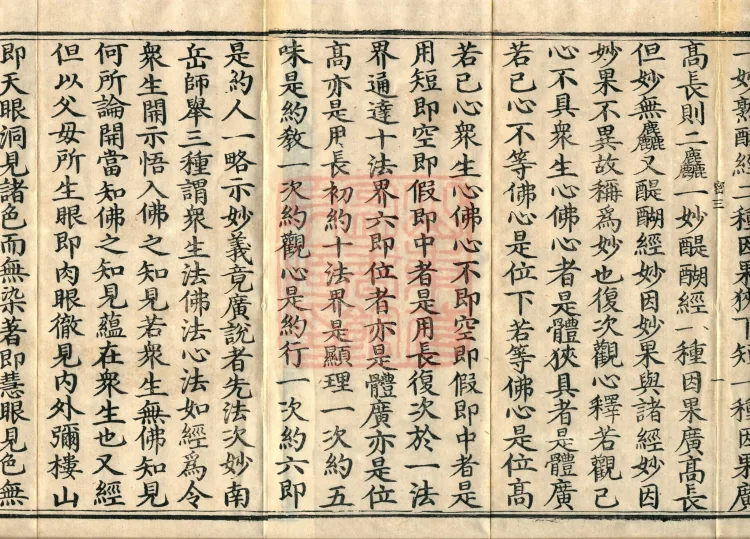 一妙熟酥經二種因果狹下短一種因果廣
髙長則二麤一妙醍醐經一種因果廣髙長
但妙無麤又醍醐經妙因妙果與諸經妙因
妙果不異故稱爲妙也復次觀心釋若觀己
心不具衆生心佛心者是體狹具者是體廣
若己心不等佛心是位下若等佛心是位髙
若己心衆生心佛心不即空即假即中者是
用短即空即假即中者是用長復次於一法
界通達十法界六即位者亦是體廣亦是位
髙亦是用長初約十法界是顯理一次約五
味是約教一次約觀心是約行一次約六即
是約人一略示妙義竟廣說者先法次妙南
岳師舉三種謂衆生法佛法心法如經爲令
衆生開示悟入佛之知見若衆生無佛知見
何所論開當知佛之知見蘊在衆生也又經
但以父母所生眼即肉眼徹見内外彌樓山
即天眼洞見諸色而無染著即慧眼見色無